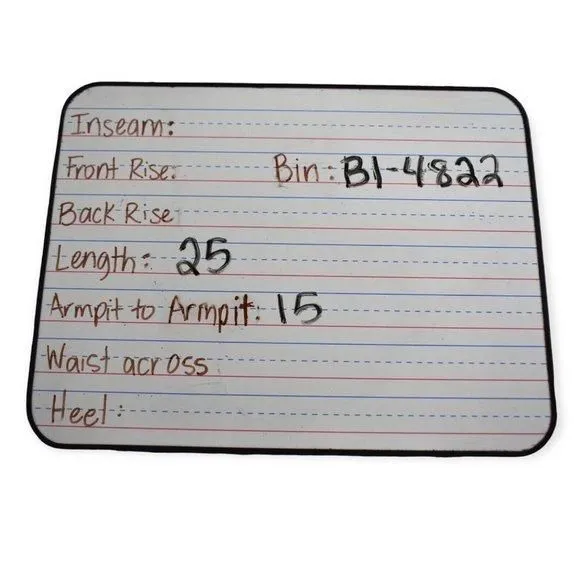 Inseam:
Front Rise: Bin: B1-4822
Back Rise
Length: 25
Armpit to Armpit: 15
Waist across
Heel: